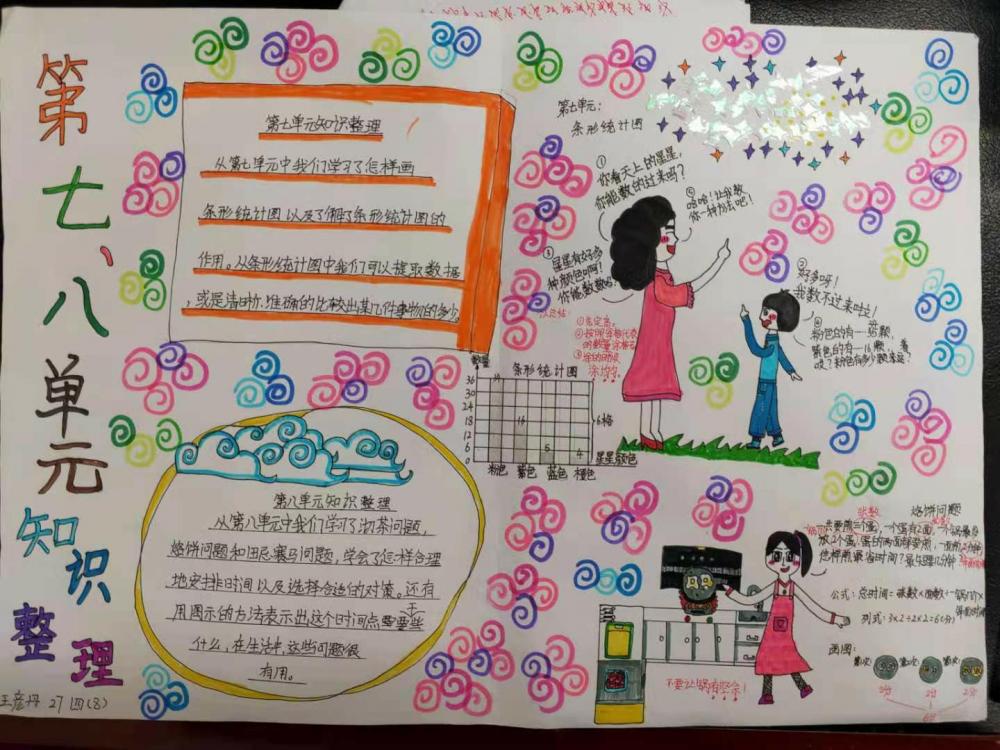 第七、八单元知识整理
王彦丹 27 四(8)
第七单元知识整理
从第七单元中我们学习了怎样画
条形统计图以及了解了条形统计图的
作用。从条形统计图中我们可以提取数据
,或是清晰、准确的比较出某几件事物的多少。
第八单元知识整理
从第八单元中我们学习了沏茶问题,
烙饼问题和田忌赛马问题,学会了怎样合理
地安排时间以及选择合适的对策。还有
用图示的方法表示出这个时间点要干些
什么,在生活中,这些问题很
有用。
第七单元:
条形统计图
①
你看天上的星星,
你能数的过来吗?
②
好多呀!
我数不过来啦!
③
星星有好多
种颜色啊!
你能数数吗?
④
粉色的有一
紫色的有一16颗
⑤
哈哈!让我教
你一种方法吧!
①先定高,
条形统计图
数量
36
30
24
18
12
6
0
粉色 紫色 蓝色 橙色
星星颜色
烙饼问题
张数
公式:总时间=张数×面数÷一锅的×
列式:3×2÷2×2=6(分)
画图:
第1次: 第2次: 第3次:
2分 2分 2分
6分
不要让锅有空余!